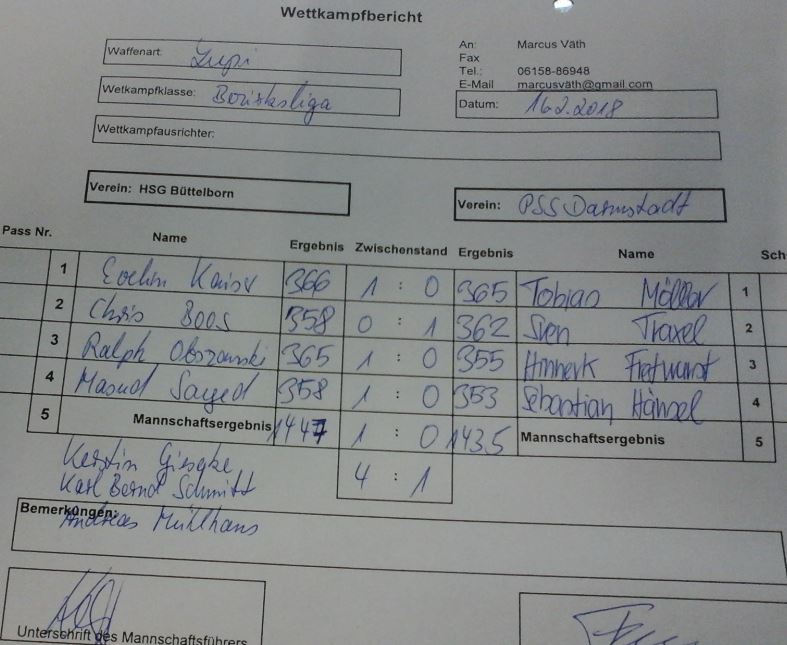 Wettkampfbericht
Waffenart: Lupi
An: Marcus Väth
Fax
Tel.: 06158-86948
E-Mail marcusvaeth@gmail.com
Wetkampfklasse: Bezirksliga
Datum: 16.2.2018
Wettkampfausrichter:
Verein: HSG Büttelborn
Verein: PSS Darmstadt
Pass Nr. Name Ergebnis Zwischenstand Ergebnis Name Sch
1 Kaiser 366 1 : 0 365 Tobias Möller 1
2 Chris Boos 358 0 : 1 362 Sven Traxel 2
3 Ralph 365 1 : 0 355 3
4 Masud Sayed 358 1 : 0 353 Sebastian Hänsel 4
5 Mannschaftsergebnis 1447 1 : 0 1435 Mannschaftsergebnis 5
4 : 1
Kerstin Gieseke
Karl Bernd Schmitt
Bemerkungen: Andreas Mühlhans
Unterschrift des Mannschaftsführers